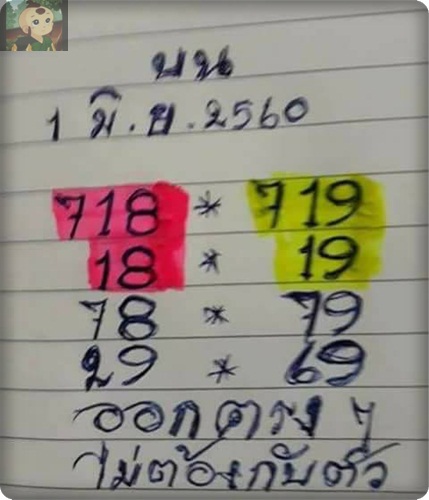 บน
1 มิ.ย.2560
718 * 719
18 * 19
78 * 79
29 * 69
ออกตรง ๆ
ไม่ต้องกับตัว